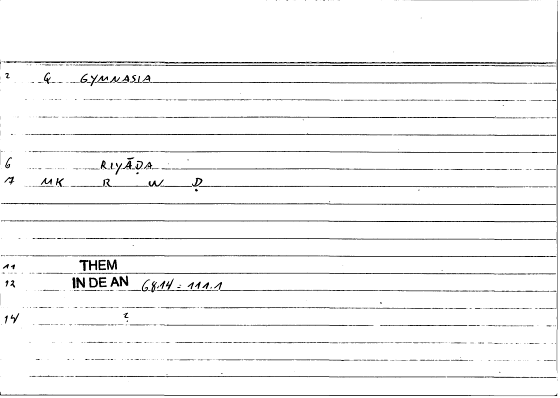 2 G GYMNASIA
6 RIYĀḌA
7 MK R W Ḍ
11 THEM
12 IN DE AN 6814 = 111.1
14 2